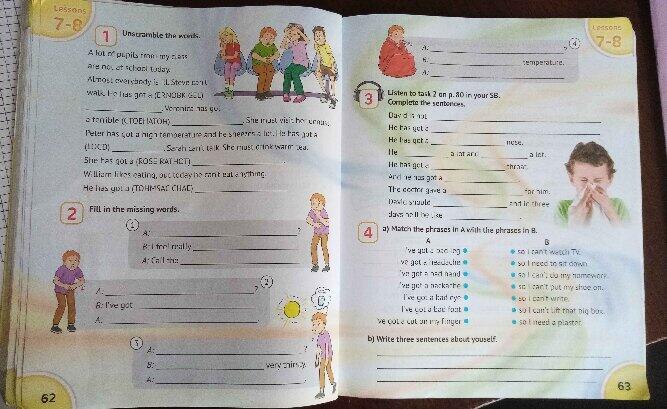 Lessons
7-8
1 Unscramble the words.
A lot of pupils from my class
are not at school today.
Almost everybody is ill. Steve can't
walk. He has got a (ERNOBK GEL)
Veronica has got
a terrible (CTOEHATOH) She must visit her
Peter has got a high temperature and he sneezes a lot. He has got a
(LOCD) Sarah can't talk. She must drink warm tea.
She has got a (ROSE RATHOT)
William likes eating, but today he can't eat anything.
He has got a (TOHMSAC CHAE)
2 Fill in the missing words.
1
A: ?
B: I feel really
A: Call the
2
A: ?
B: I've got
A:
3
A: ?
B: very thirsty.
A:
62
Lessons
7-8
4
A: ?
B: temperature.
A:
3 Listen to task 2 on p. 80 in your SB.
Complete the sentences.
David is not
He has got a
He has got a nose.
He a lot and a lot.
He has got a throat.
And he has got a
The doctor gave a for him.
David should and in three
days he'll be like
4 a) Match the phrases in A with the phrases in B.
A B
I've got a bad leg so I can't watch TV.
I've got a headache so I need to sit down.
I've got a bad hand so I can't do my homework.
I've got a backache so I can't put my shoe on.
I've got a bad eye so I can't write.
I've got a bad foot so I can't lift that big box.
I've got a cut on my finger so I need a plaster.
b) Write three sentences about youself.
63